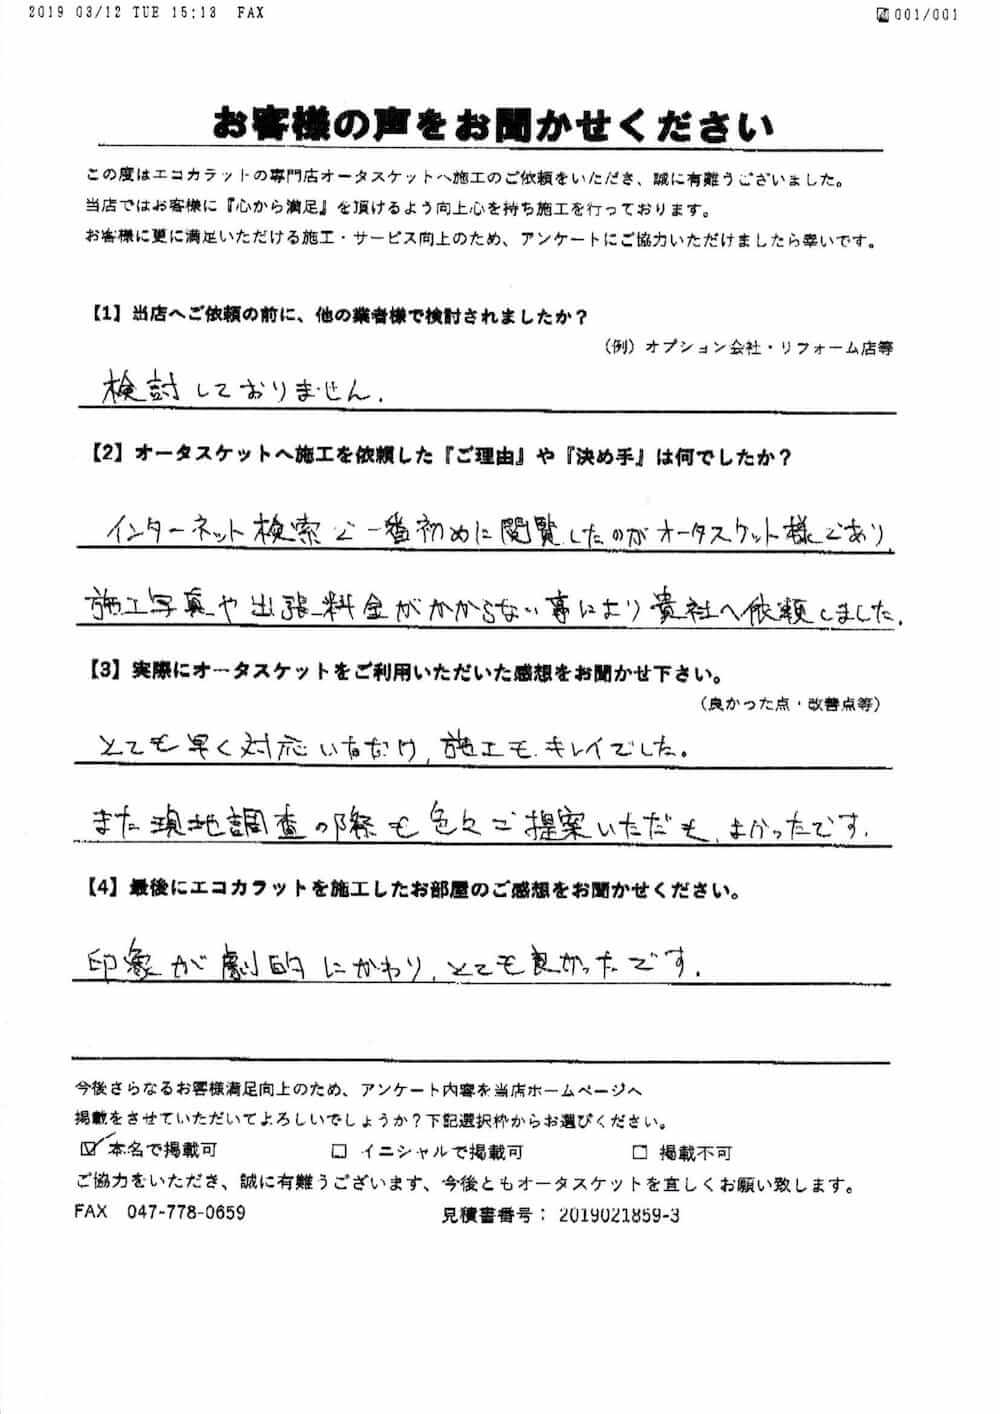 2019 03/12 TUE 15:13 FAX 001/001
お客様の声をお聞かせください
この度はエコカラットの専門店オータスケットへ施工のご依頼をいただき、誠に有難うございました。
当店ではお客様に『心から満足』を頂けるよう向上心を持ち施工を行っております。
お客様に更に満足いただける施工・サービス向上のため、アンケートにご協力いただけましたら幸いです。
【1】当店へご依頼の前に、他の業者様で検討されましたか？
（例）オプション会社・リフォーム店等
検討しておりません.
【2】オータスケットへ施工を依頼した『ご理由』や『決め手』は何でしたか？
インターネット検索で一番初めに閲覧したのがオータスケット様であり,
施工写真や出張料金がかからない事により貴社へ依頼しました.
【3】実際にオータスケットをご利用いただいた感想をお聞かせ下さい。
（良かった点・改善点等）
とても早く対応いただけ,施工もキレイでした。
また現地調査の際も色々ご提案いただき,よかったです.
【4】最後にエコカラットを施工したお部屋のご感想をお聞かせください。
印象が劇的にかわり,とても良かったです.
今後さらなるお客様満足向上のため、アンケート内容を当店ホームページへ
掲載をさせていただいてよろしいでしょうか？下記選択枠からお選びください。
☑ 本名で掲載可 □ イニシャルで掲載可 □ 掲載不可
ご協力をいただき、誠に有難うございます、今後ともオータスケットを宜しくお願い致します。
FAX 047-778-0659 見積書番号： 2019021859-3